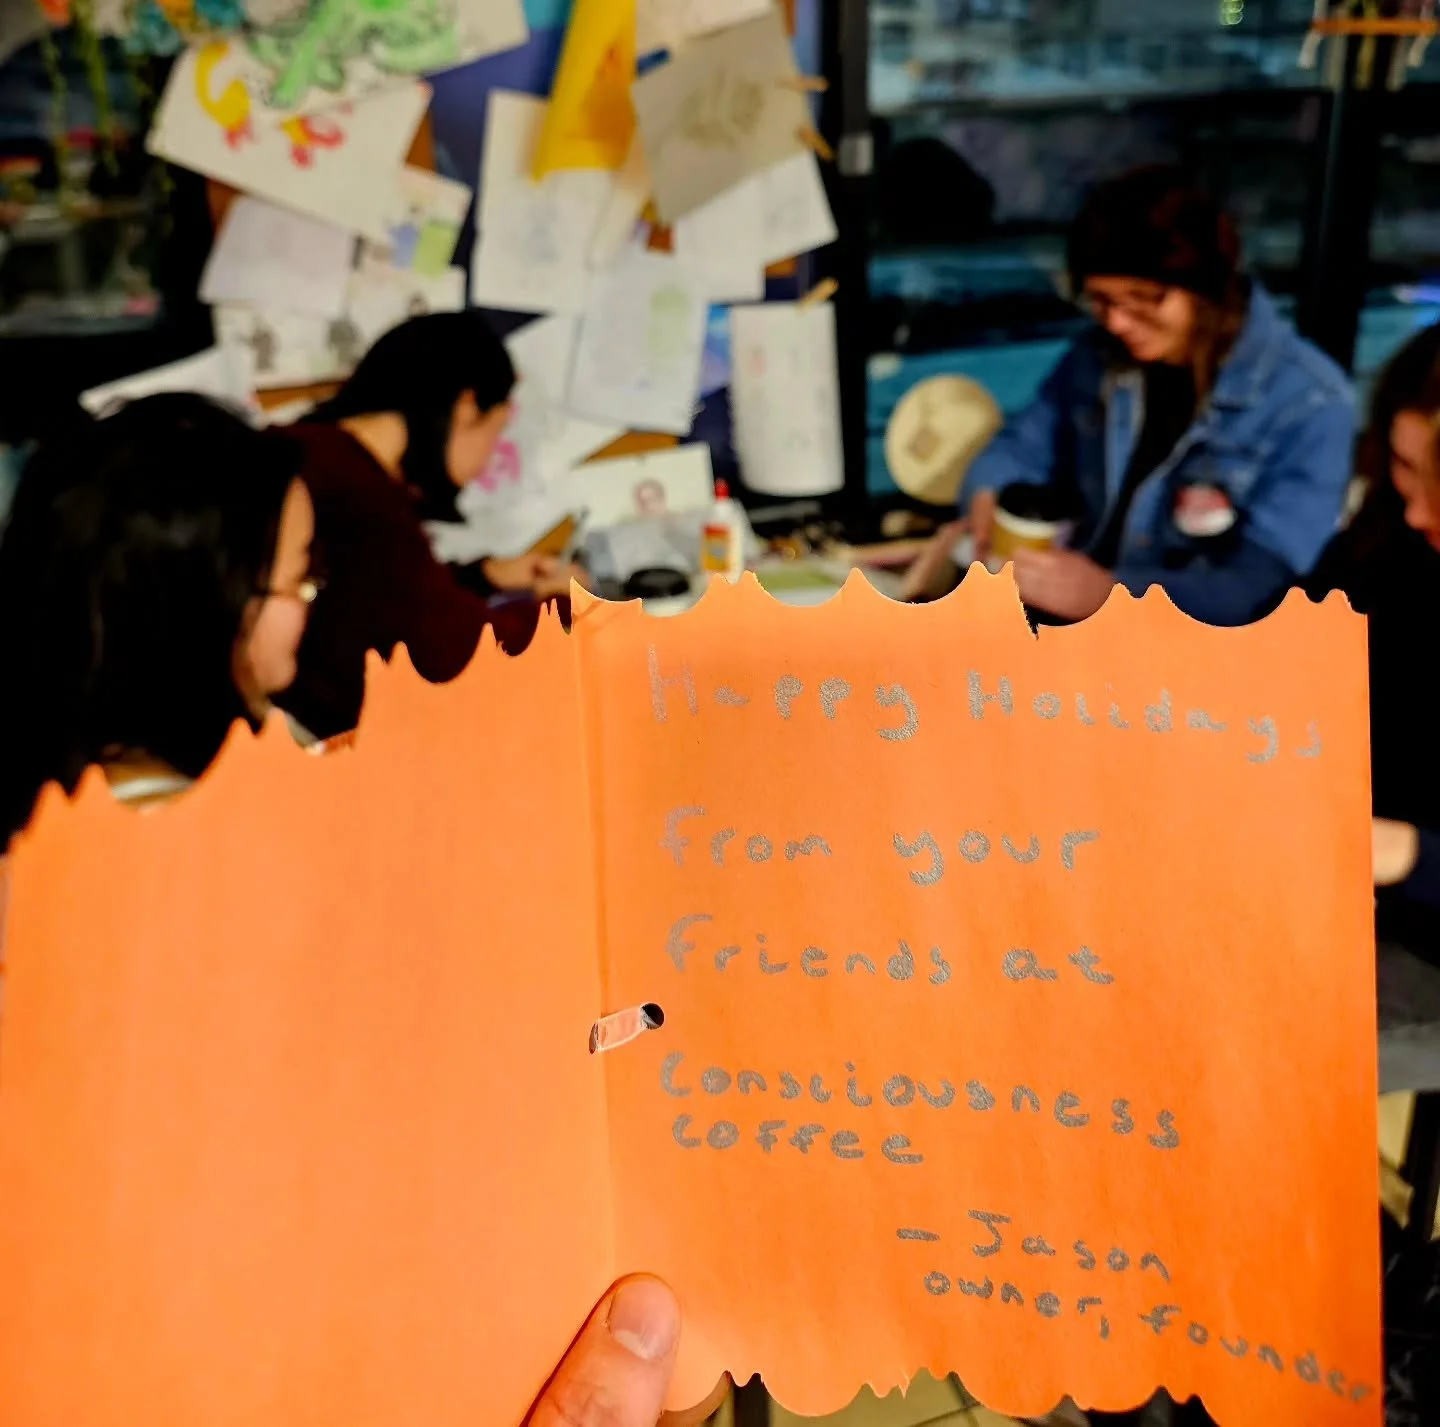 Happy Holidays
from your
friends at
Consciousness
coffee
- Jason
owner, founder